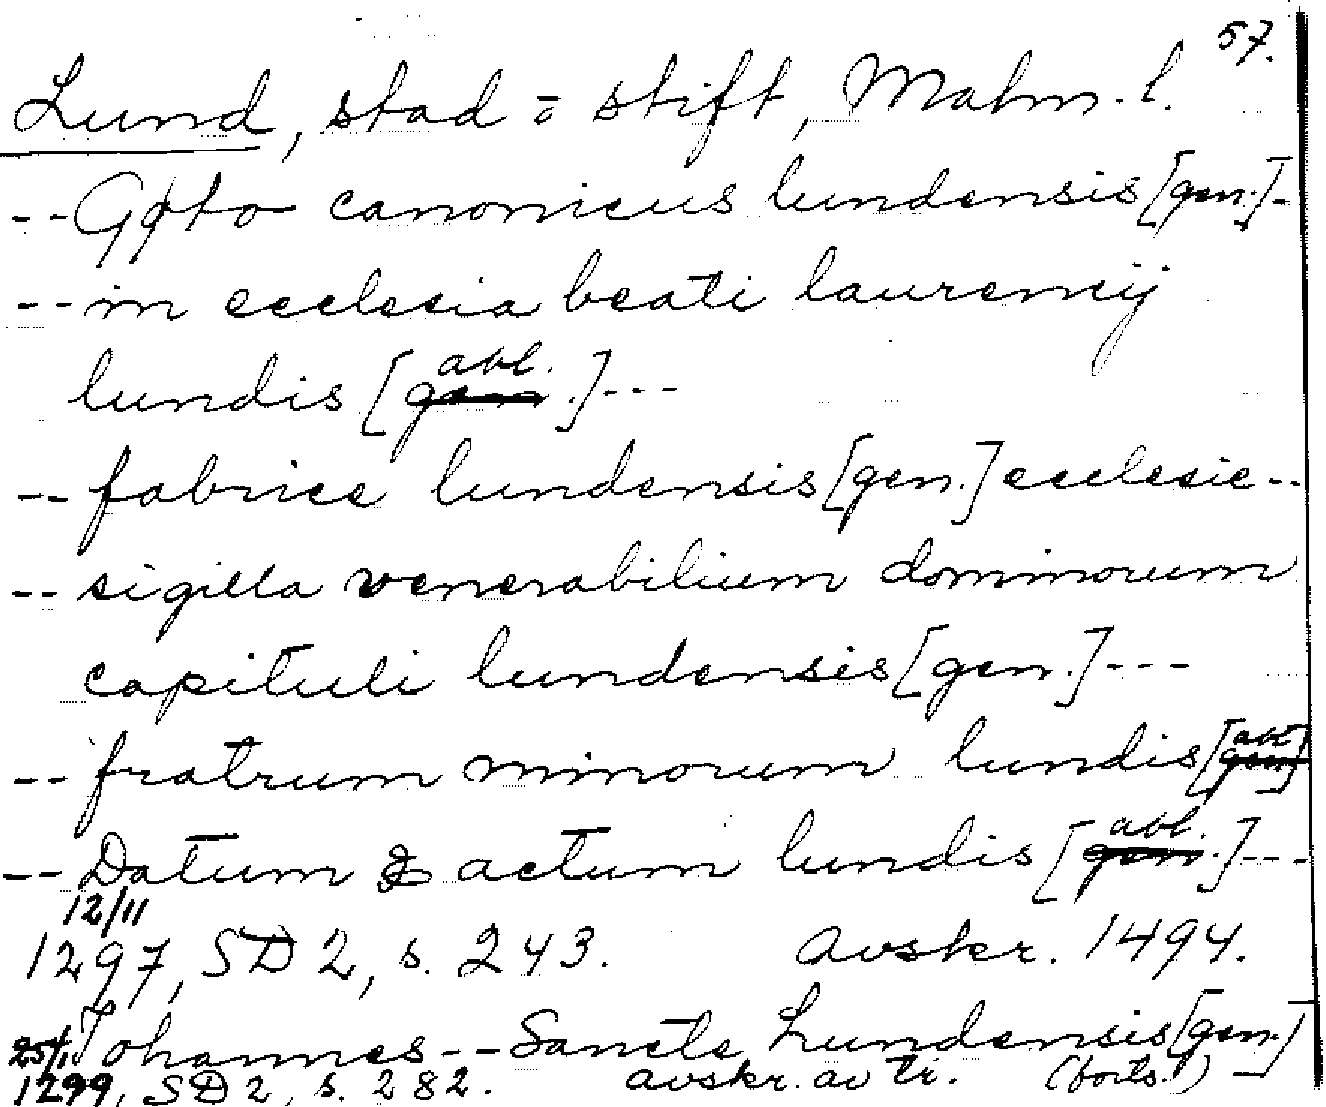 57.
Lund, stad o stift, Malm. l.
-- canonicus lundensis [gen.] -
-- in ecclesia beati laurencij
lundis [abl. gen.] ---
-- fabrice lundensis [gen.] ecclesie --
-- sigilla venerabilium dominorum
capituli lundensis [gen.] ---
-- fratrum minorum lundis [abl. gen]
-- Datum & actum lundis [abl. gen.] ---
12/11
1297, SD 2, s. 243. avskr. 1494.
Johannes -- Sancte Lundensis [gen.]
1299, SD 2, s. 282. avskr. av tr. (forts.!)